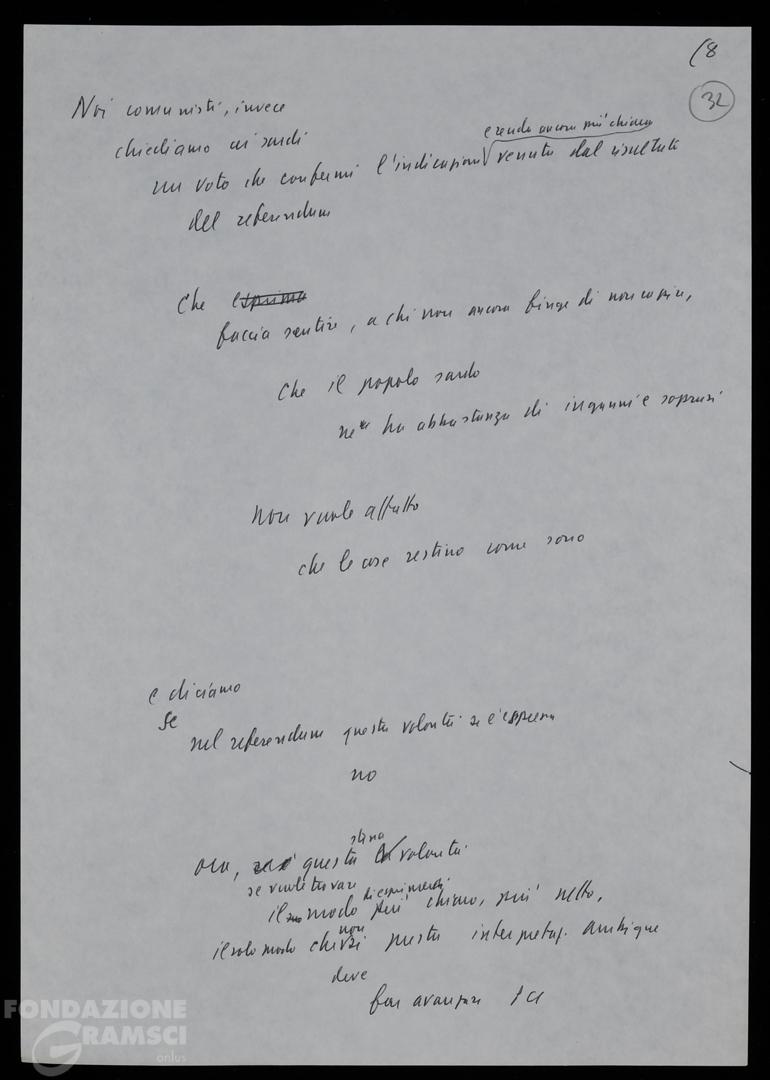 (8
32
Noi comunisti, invece
chiediamo ai sardi
e renda ancora più chiara
un voto che confermi l'indicazione venuta dal risultato
del referendum
Che esprima
faccia sentire, a chi non ancora finge di non capire,
che il popolo sardo
ne ha abbastanza di inganni e soprusi
Non vuole affatto
che le cose restino come sono
e diciamo
se
nel referendum questa volontà si è espressa
no
stessa
ora, questa volontà
se vuole trovare di esprimersi
il modo più chiaro, più netto,
non
il solo modo che si presta interpretaz. ambigue
deve
far avanzare PCI
FONDAZIONE
GRAMSCI
onlus